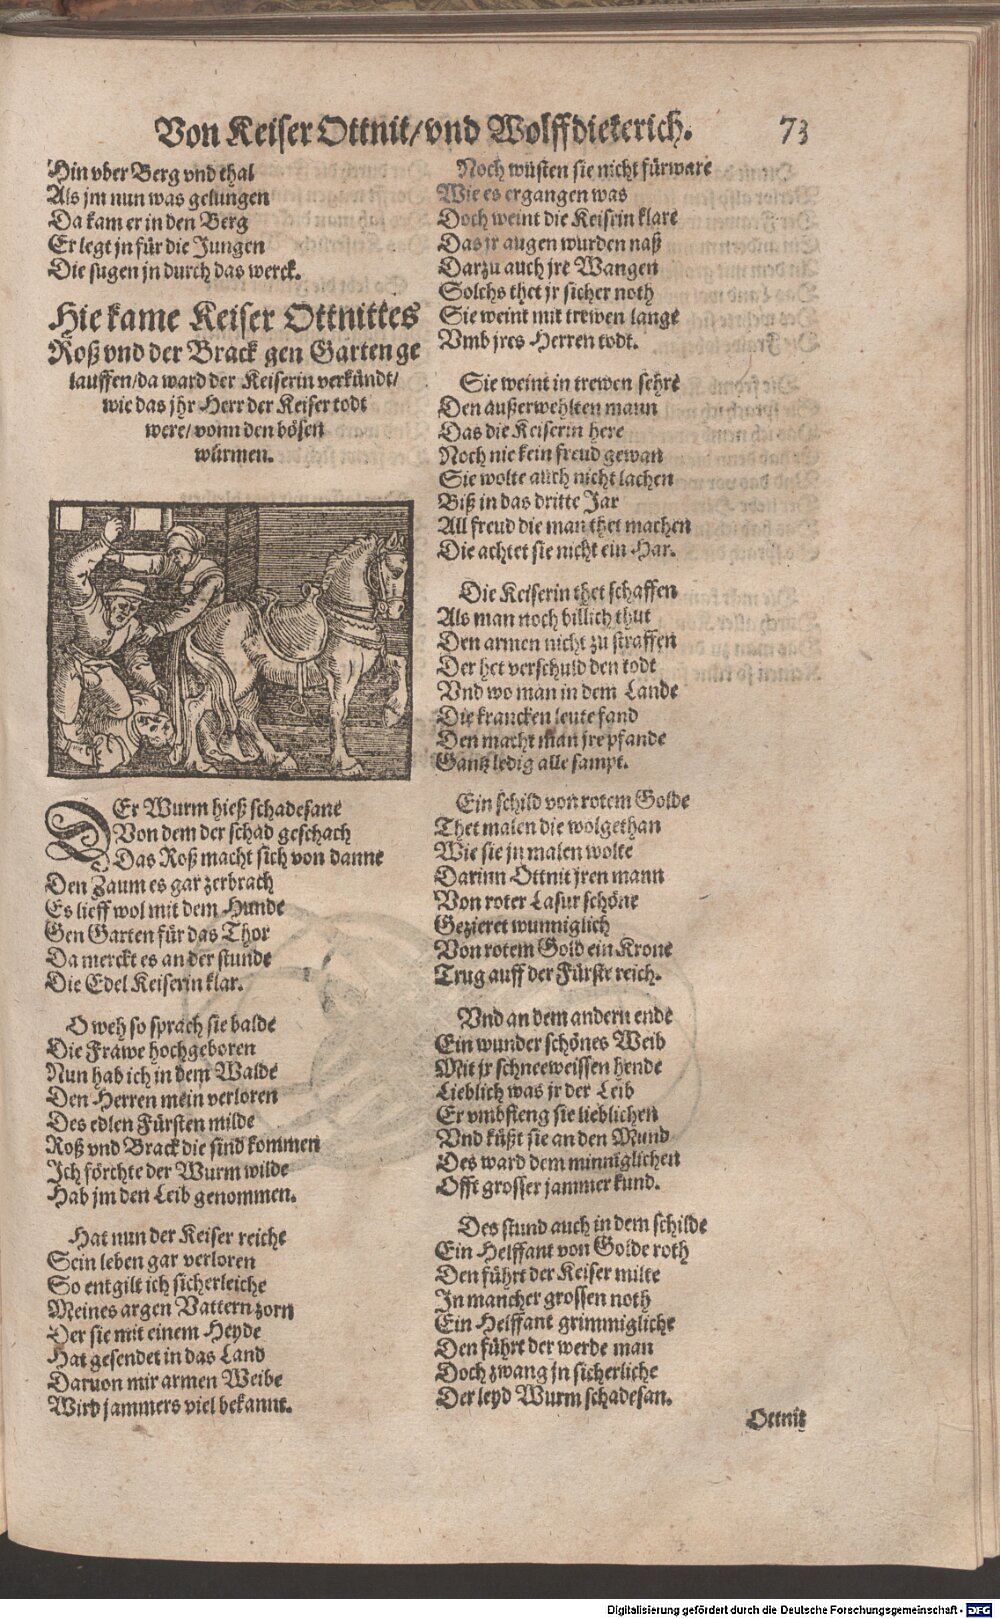 Von Keiser Ottnit/vnd Wolffdieterich. 73
Hin vber Berg vnd thal
Als jm nun was gelungen
Da kam er in den Berg
Er legt jn für die Jungen
Die sugen jn durch das werck.
Hie kame Keiser Ottnittes
Roß vnd der Brack gen Garten ge
lauffen/da ward der Keiserin verkündt/
wie das jhr Herr der Keiser todt
were/vonn den bösen
würmen.
DEr Wurm hieß schadesane
Von dem der schad geschach
Das Roß macht sich von danne
Den Zaum es gar zerbrach
Es lieff wol mit dem Hunde
Gen Garten für das Thor
Da merckt es an der stunde
Die Edel Keiserin klar.
O weh so sprach sie balde
Die Frawe hochgeboren
Nun hab ich in dem Walde
Den Herren mein verloren
Des edlen Fürsten milde
Roß vnd Brack die sind kommen
Ich förchte der Wurm wilde
Hab jm den Leib genommen.
Hat nun der Keiser reiche
Sein leben gar verloren
So entgilt ich sicherleiche
Meines argen Vattern zorn
Der sie mit einem Heyde
Hat gesendet in das Land
Daruon mir armen Weibe
Wird jammers viel bekannt.
Noch wüsten sie nicht fürware
Wie es ergangen was
Doch weint die Keiserin klare
Das jr augen wurden naß
Darzu auch jre Wangen
Solchs thet jr sicher noth
Sie weint mit trewen lange
Vmb jres Herren todt.
Sie weint in trewen sehre
Den außerwehlten mann
Das die Keiserin here
Noch nie kein freud gewan
Sie wolte auch nicht lachen
Biß in das dritte Jar
All freud die man thet machen
Die achtet sie nicht ein Har.
Die Keiserin thet schaffen
Als man noch billich thut
Den armen nicht zu straffen
Der het verschuld den todt
Vnd wo man in dem Lande
Die krancken leute fand
Den macht man jre pfande
Gantz ledig alle sampt.
Ein schild von rotem Golde
Thet malen die wolgethan
Wie sie jn malen wolte
Darinn Ottnit jren mann
Von roter Lasur schöne
Gezieret wunniglich
Von rotem Gold ein Krone
Trug auff der Fürste reich.
Vnd an dem andern ende
Ein wunder schönes Weib
Mit jr schneeweissen hende
Lieblich was jr der Leib
Er vmbfieng sie lieblichen
Vnd küßt sie an den Mund
Des ward dem minniglichen
Offt grosser jammer kund.
Des stund auch in dem schilde
Ein Helffant von Golde roth
Den führt der Keiser milte
In mancher grossen noth
Ein Helffant grimmigliche
Den führt der werde man
Doch zwang jn sicherliche
Der leyd Wurm schadesan.
Ottnit
Digitalisierung gefördert durch die Deutsche Forschungsgemeinschaft - DFG